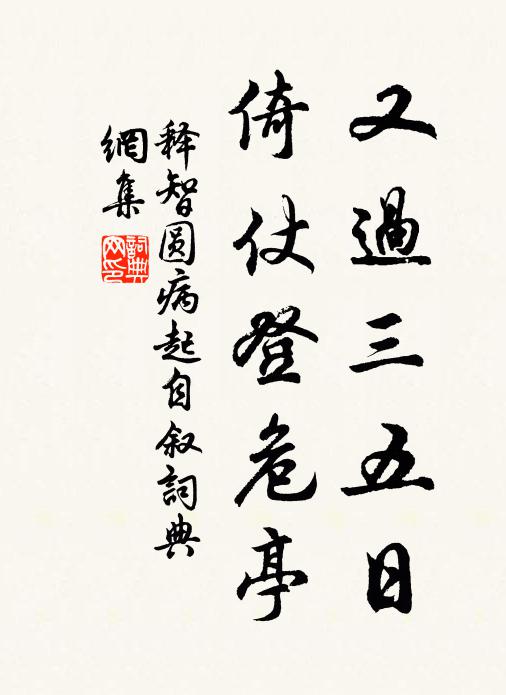 又過三五日
倚仗登危亭
释智圆病起自叙詞典
網集
詞典
网印